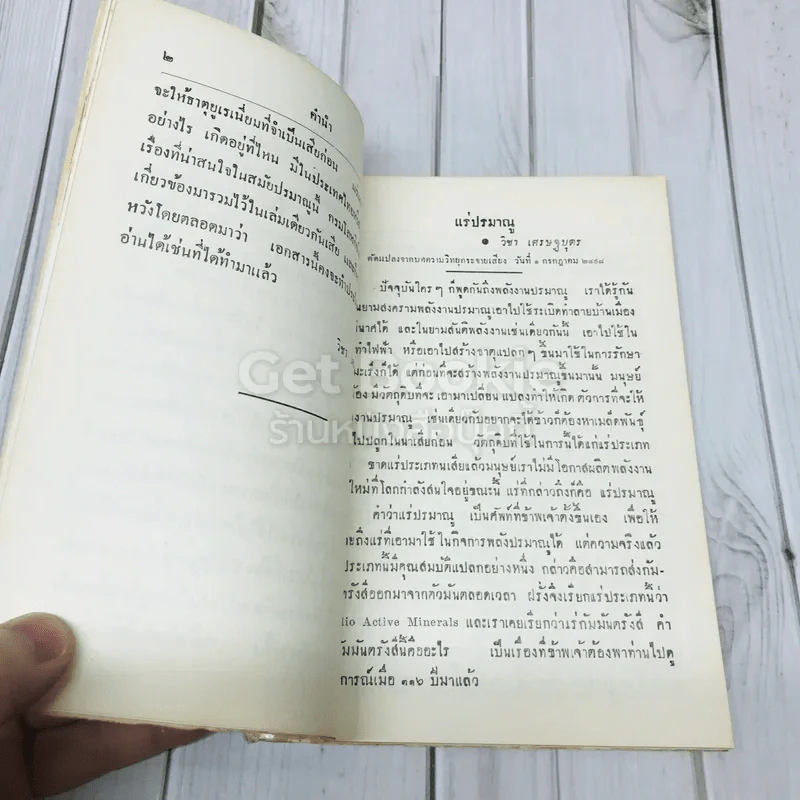 ๒
คำนำ
จะให้ธาตุยูเรเนี่ยมที่จำเป็นเสียก่อน
อย่างไร เกิดอยู่ที่ไหน มีในประเทศไทย
เรื่องที่น่าสนใจในสมัยปรมาณูนี้ กรมโลหกิจ
เกี่ยวข้องมารวมไว้ในเล่มเดียวกันเสีย
หวังโดยตลอดมาว่า เอกสารนี้คงจะทำ
อ่านได้เช่นที่ได้ทำมาแล้ว
วิชา
แร่ปรมาณู
วิชา เศรษฐบุตร
ดัดแปลงจากบทความวิทยุกระจายเสียง วันที่ ๑ กรกฎาคม ๒๔๙๘
ปัจจุบันใคร ๆ ก็พูดกันถึงพลังงานปรมาณู เราได้รู้กัน
นยามสงครามพลังงานปรมาณูเอาไปใช้ระเบิดทำลายบ้านเมือง
พินาศได้ และในยามสันติพลังงานเช่นเดียวกันนี้ เอาไปใช้ใน
ทำไฟฟ้า หรือเอาไปสร้างธาตุแปลก ๆ ขึ้นมาใช้ในการรักษา
มะเร็งก็ได้ แต่ก่อนที่จะสร้างพลังงานปรมาณูขึ้นมานั้น มนุษย์
ต้อง มีวัตถุดิบที่จะ เอามาเปลี่ยน แปลงทำให้เกิด ตัวการที่จะให้
งานปรมาณู เช่นเดียวกับอยากจะได้ข้าวก็ต้องหาเมล็ดพันธุ์
ไปปลูกในนาเสียก่อน วัตถุดิบที่ใช้ในการนี้ได้แก่แร่ประเภท
ขาดแร่ประเภทนี้เสียแล้วมนุษย์เราไม่มีโอกาสผลิตพลังงาน
ใหม่ที่โลกกำลังสนใจอยู่ขณะนี้ แร่ที่กล่าวถึงก็คือ แร่ปรมาณู
คำว่าแร่ปรมาณู เป็นศัพท์ที่ข้าพเจ้าตั้งขึ้นเอง เพื่อให้
ยถึงแร่ที่เอามาใช้ในกิจการพลังปรมาณูได้ แต่ความจริงแล้ว
ประเภทนี้มีคุณสมบัติแปลกอย่างหนึ่ง กล่าวคือสามารถส่งกัม-
ตรังสีออกมาจากตัวมันตลอดเวลา ฝรั่งจึงเรียกแร่ประเภทนี้ว่า
dio Active Minerals และเราเคยเรียกว่าแร่กัมมันตรังสี คำ
มมันตรังสีนี้คืออะไร เป็นเรื่องที่ข้าพเจ้าต้องพาท่านไปดู
การณ์เมื่อ ๑๑๖ ปีมาแล้ว
Get Bookie